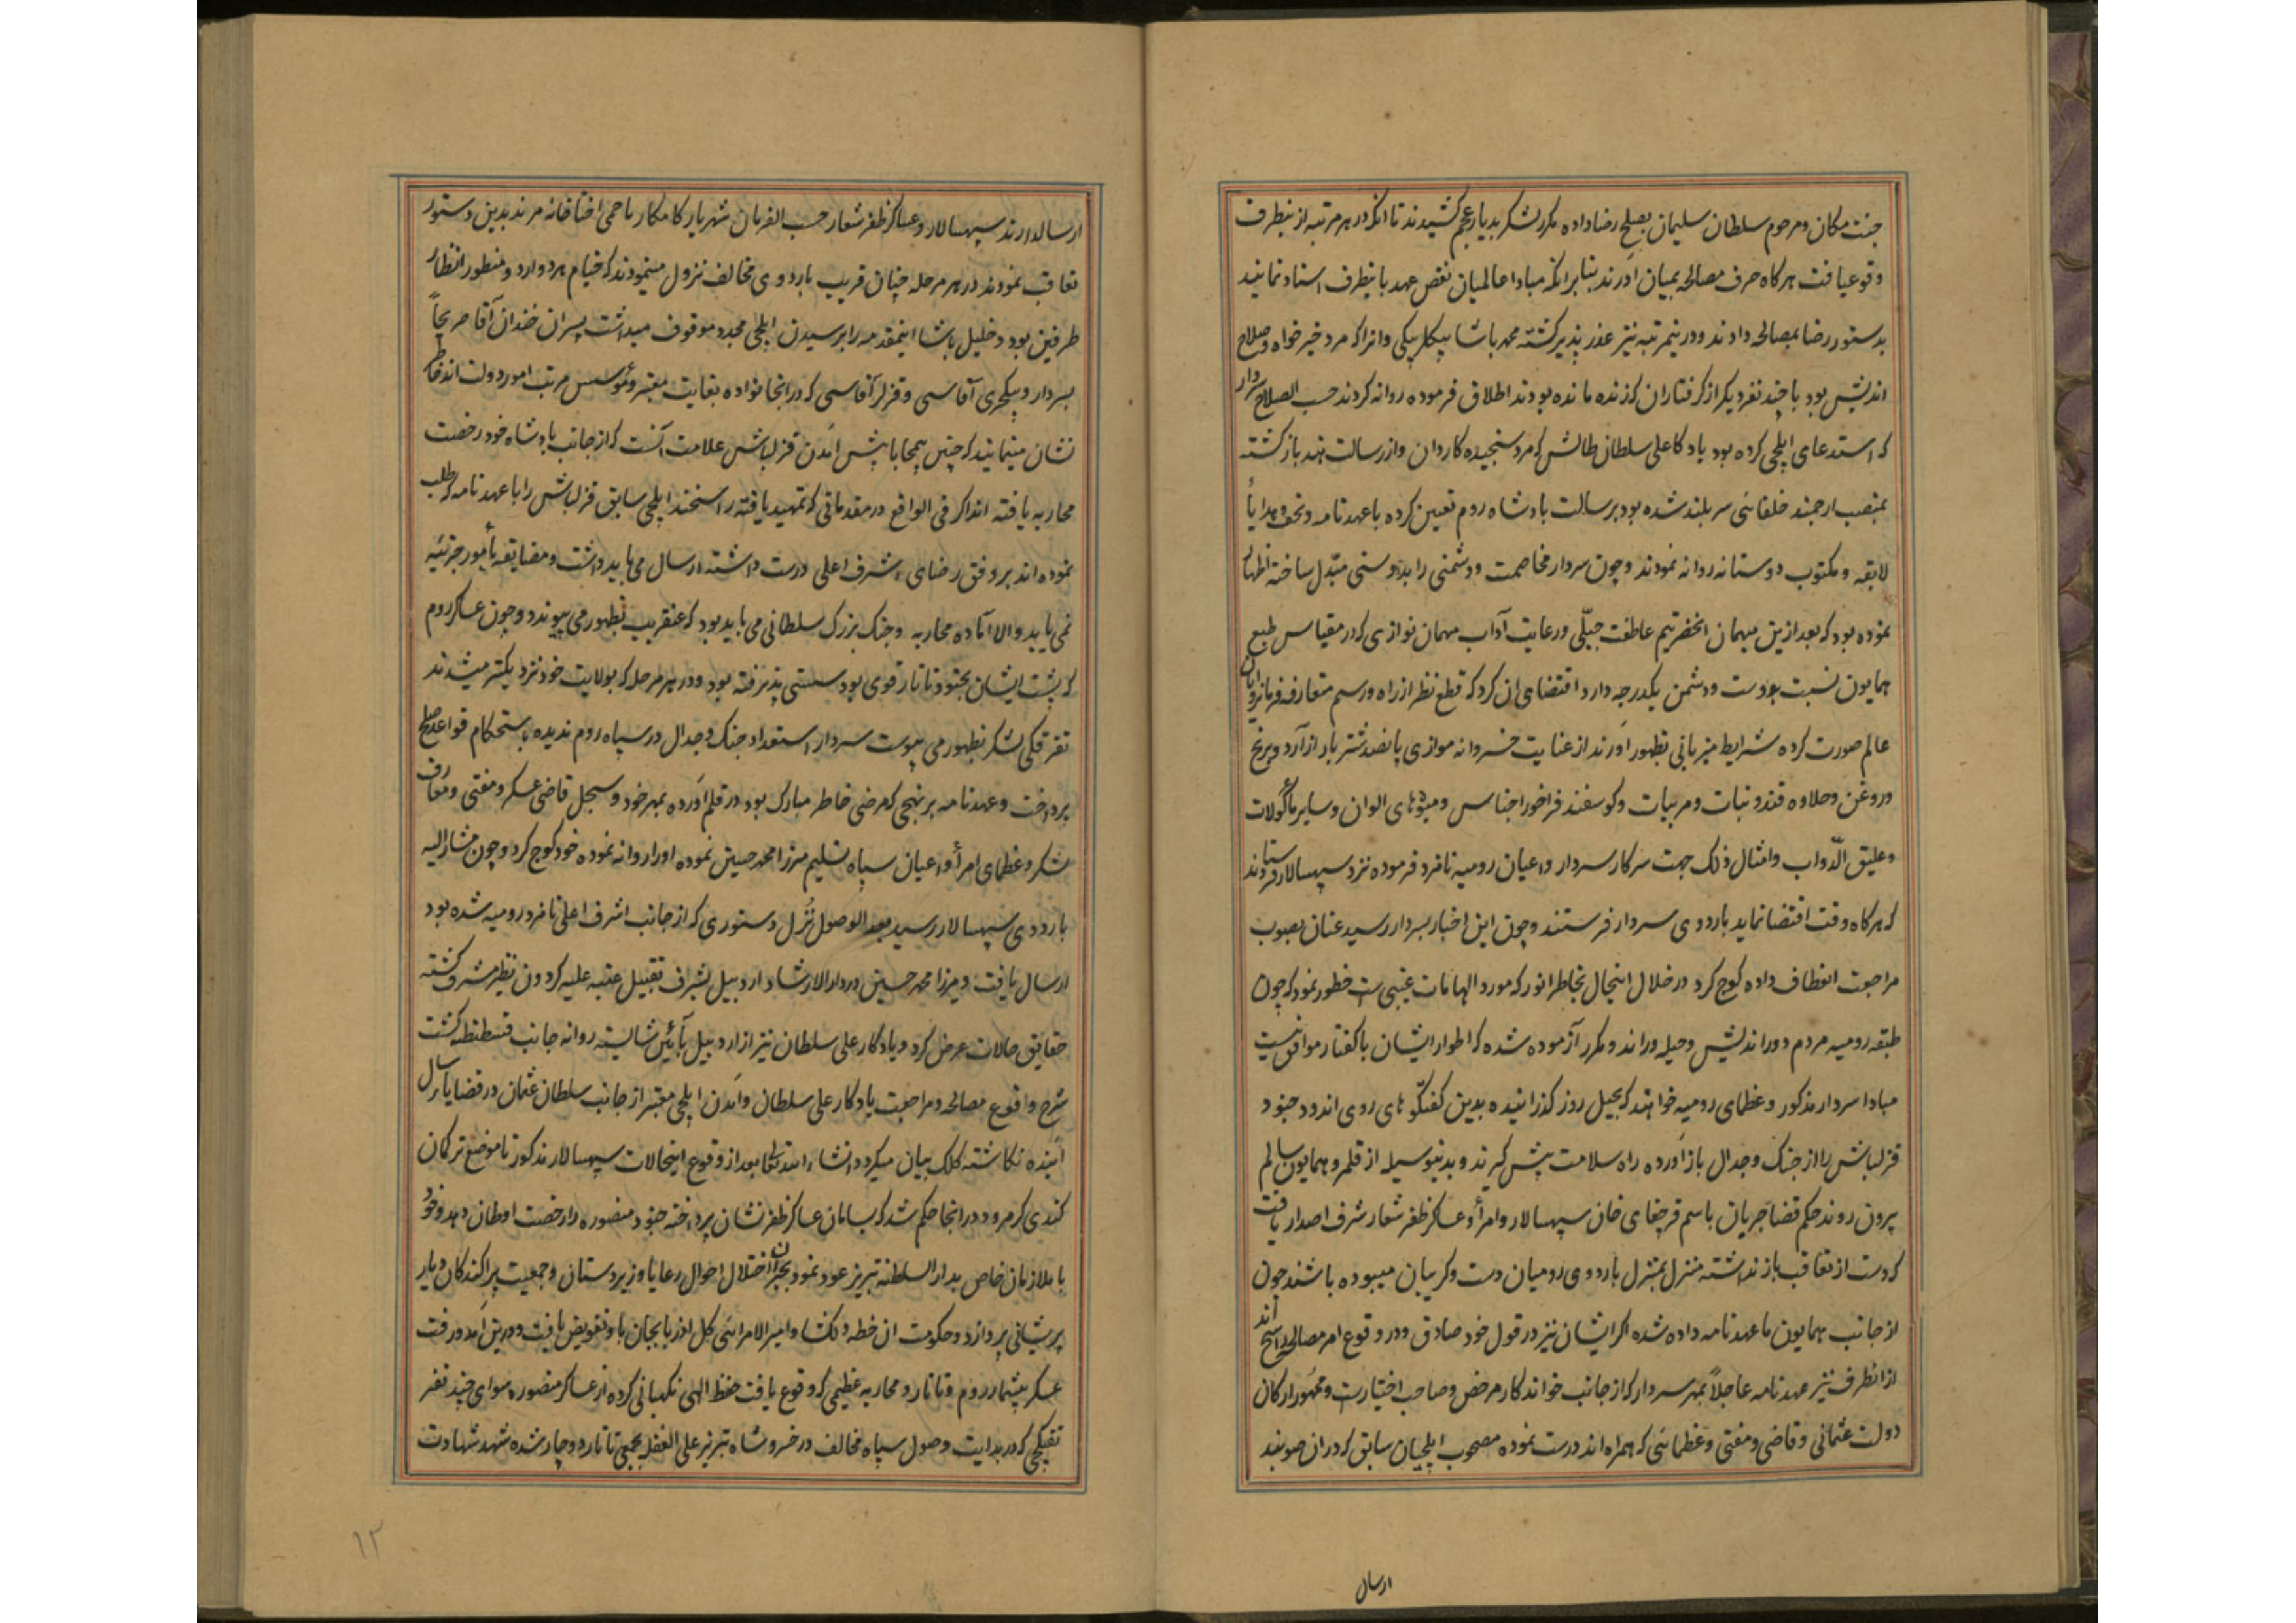 جنت مکان و مرحوم سلطان سلیمان بصلح رضا داده مکرر لشکر بدیار عجم کشیدند تا انکه در هر مرتبه از ینطرف
وقوع یافت هرکاه حرف مصالحه بمیان آورند بنابر انکه مبادا عالمیان نقض عهد باینطرف اسناد نمایند
بدستور رضا بمصالحه دادند و درینمرتبه نیز عذر پذیر کشته محمد پاشا بیکلربیکی وانرا که مرد خیرخواه و صلاح
اندیش بود با چند نفر دیکر از کرفتاران که زنده مانده بودند اطلاق فرموده روانه کردند حسب الصلاح سردار
که استدعای ایلچی کرده بود یادکار علی سلطان طالش که مرد سنجیده کاردان و از رسالت هند بازکشته
بمنصب ارجمند خلفائی سربلند شده بود برسالت پادشاه روم تعیین کرده با عهدنامه و تحف و هدایا
لایقه و مکتوب دوستانه روانه نمودند و چون سردار مخاصمت و دشمنی را بدوستی مبدّل ساخته اظهار
نموده بود که بعد ازین میهمان انحضرتیم عاطفت جبلّی و رعایت آداب مهمان نوازی که در مقیاس طبع
همایون نسبت بدوست و دشمن یکدرجه دارد اقتضای ان کرد که قطع نظر از راه و رسم متعارفه فرمانروایان
عالم صورت کرده شرایط میزبانی بظهور آورند از عنایت خسروانه موازی پانصد شتر بار از آرد و برنج
و روغن و حلاوه قند و نبات و مربیات و کوسفند فراخور اجناس و میوهای الوان و سایر ماکولات
و علیق الدّواب و امثال ذلک جهت سرکار سردار و اعیان رومیه نامزد فرموده نزد سپهسالار فرستادند
که هرکاه وقت اقتضا نماید باردوی سردار فرستند و چون این اخبار بسردار رسید عنان بصوب
مراجعت انعطاف داده کوچ کرد در خلال اینحال بخاطر انور که مورد الهامات غیبی است خطور نمود که چون
طبقه رومیه مردم دوراندیش و حیله وراند و مکرر آزموده شده که اطوار ایشان با کفتار موافق نیست
مبادا سردار مذکور و عظمای رومیه خواهند که بحیل روز کذرانیده بدین کفتکوهای روی اندود جنود
قزلباش را از جنک و جدال بازآورده راه سلامت پیش کیرند و بدینوسیله از قلمرو همایون سالم
بیرون روند حکم قضا جریان باسم قرچغای خان سپهسالار و امرا و عساکر ظفر شعار شرف اصدار یافت
که دست از تعاقب باز نداشته منزل بمنزل باردوی رومیان دست و کریبان میبوده باشند چون
از جانب همایون ما عهدنامه داده شده اکر ایشان نیز در قول خود صادق و در وقوع امر مصالحه راسخ اند
از انطرف نیز عهدنامه عاجلاً بمهر سردار که از جانب خواندکار مرخص و صاحب اختیارست و مهور ارکان
دولت عثمانی و قاضی و مفتی و عظمائی که همراه اند درست نموده مصحوب ایلچیان سابق که در ان صوبند
ارسال
ارسالدارند سپهسالار و عساکر ظفر شعار حسب الفرمان شهریار کامکار باحمی اختاخانه مرند بدین دستور
تعاقب نمودند در هر مرحله چنان قریب باردوی مخالف نزول مینمودند که خیام هر دو اردو منظور انظار
طرفین بود و خلیل پاشا اینمقدمه را برسیدن ایلچی مجدد موقوف میداشت پسران خندان آقا صریحاً
بسردار و ینکچری آقاسی و قزلر آقاسی که در انجا نواده بغایت معتبر و مؤسس مرتب امور دولت اند خاطر
نشان مینمایند که چنین بیمحابا پیش آمدن قزلباش علامت آنست که از جانب پادشاه خود رخصت
محاربه یافته اند اکر فی الواقع در مقدماتی که تمهید یافته راسخند ایلچی سابق قزلباش را با عهدنامه که طلب
نموده اند بر وفق رضای اشرف اعلی درست داشته ارسال می باید داشت و مضایقه بأمور جزئیه
نمی باید و الا آماده محاربه و جنک بزرک سلطانی می باید بود که عنقریب بظهور می پیوندد و چون عساکر روم
که پشت ایشان بجنود تاتار قوی بود سستی پذیرفته بود و در هر مرحله که بولایت خود نزدیکتر میشدند
تفرقکی لشکر بظهور می پیوست سردار استعداد جنک و جدال در سپاه روم ندیده باستحکام قواعد صلح
پرداخت و عهدنامه بر نهجی که مرضی خاطر مبارک بود در قلم آورده بمهر خود و سجل قاضی عسکر و مفتی و معارف
لشکر و عظمای امرا و اعیان سپاه تسلیم میرزا محمد حسین نموده او را روانه نموده خود کوچ کرد و چون مشارالیه
باردوی سپهسالار رسید بعد الوصول نُزُل دستوری که از جانب اشرف اعلی نامزد رومیه شده بود
ارسال یافت و میرزا محمد حسین در دارالارشاد اردبیل بشرف تقبیل عتبه علیه کردون نظیر مشرف کشته
حقایق حالات عرض کرد و یادکار علی سلطان نیز از اردبیل بآئین شایسته روانه جانب قسطنطنیه کشت
شرح وقوع مصالحه و مراجعت یادکار علی سلطان و آمدن ایلچی معتبر از جانب سلطان عثمان در قضایا سال
آینده نکاشته کلک بیان میکردد انشاء الله تعالی بعد از وقوع اینحالات سپهسالار مذکور تا موضع ترکمان
کندی کرمرود در انجا حکم شد که بسامان عساکر ظفر نشان پرداخته جنود منصوره را رخصت اوطان دهد و خود
با ملازمان خاص بدار السلطنه تبریز عود نموده بجبران اختلال احوال رعایا و زیردستان و جمعیت پراکندکان دیار
پریشانی پردازد و حکومت ان خطه دلکشا و امیرالامرائی کل اذربایجان باو تفویض یافت و درین آمد و رفت
عسکر بیشمار روم و تاتار و محاربه عظیمی که وقوع یافت حفظ الهی نکهبانی کرده از عساکر منصوره سوای چند نفر
تفنکچی که در بدایت وصول سپاه مخالف در خسرو شاه تبریز علی الغفله بجمعی تاتار دوچار شده شهد شهادت
۱۲